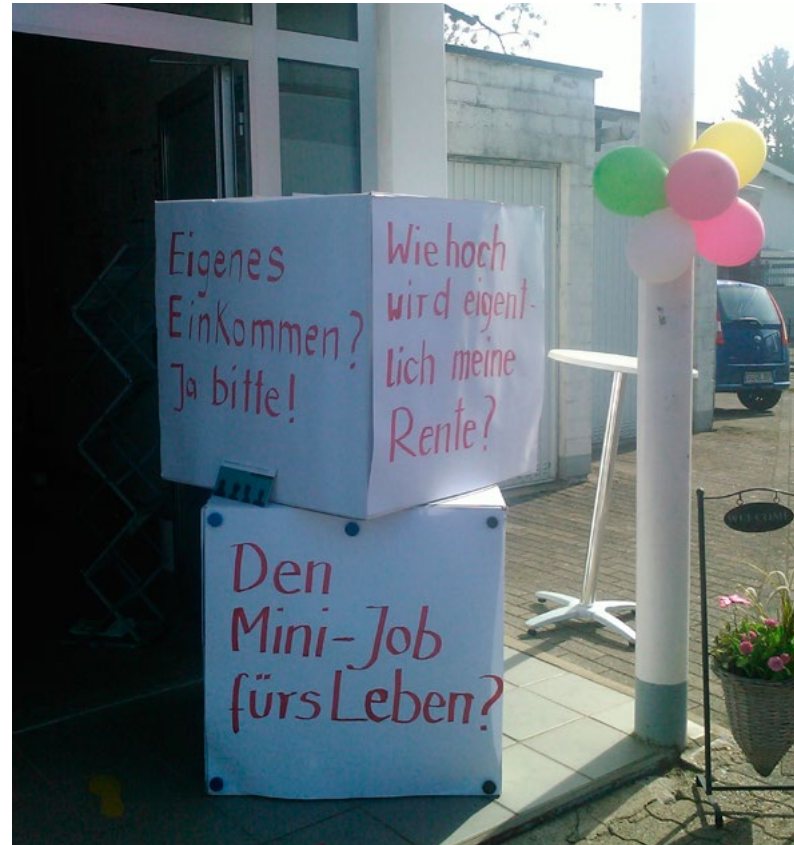 Eigenes
Einkommen?
Ja bitte!
Wie hoch
wird eigent-
lich meine
Rente?
Den
Mini-Job
fürs Leben?
WELCOME